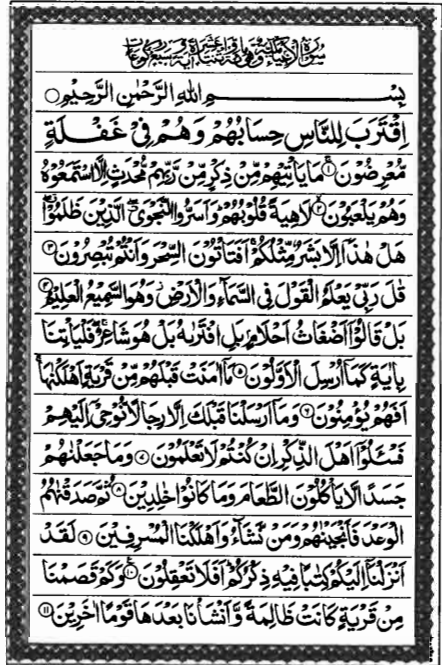 سورة الانبياء مكية وهى مائة واثنتا عشرة اية وسبع ركوعات
بِسْمِ اللهِ الرَّحْمٰنِ الرَّحِيْمِ ○
اِقْتَرَبَ لِلنَّاسِ حِسَابُهُمْ وَهُمْ فِيْ غَفْلَةٍ
مُّعْرِضُوْنَ ۱ مَا يَاْتِيْهِمْ مِّنْ ذِكْرٍ مِّنْ رَّبِّهِمْ مُّحْدَثٍ اِلَّا اسْتَمَعُوْهُ
وَهُمْ يَلْعَبُوْنَ ۲ لَاهِيَةً قُلُوْبُهُمْ ۭ وَاَسَرُّوا النَّجْوَى ۖ الَّذِيْنَ ظَلَمُوْا ۖ
هَلْ هٰذَآ اِلَّا بَشَرٌ مِّثْلُكُمْ ۚ اَفَتَاْتُوْنَ السِّحْرَ وَاَنْتُمْ تُبْصِرُوْنَ ۳
قٰلَ رَبِّيْ يَعْلَمُ الْقَوْلَ فِي السَّمَآءِ وَالْاَرْضِ ۡ وَهُوَ السَّمِيْعُ الْعَلِيْمُ ۴
بَلْ قَالُوْٓا اَضْغَاثُ اَحْلَامٍۢ بَلِ افْتَرٰىهُ بَلْ هُوَ شَاعِرٌ ۚ فَلْيَاْتِنَا
بِاٰيَةٍ كَمَآ اُرْسِلَ الْاَوَّلُوْنَ ۵ مَآ اٰمَنَتْ قَبْلَهُمْ مِّنْ قَرْيَةٍ اَهْلَكْنٰهَا ۚ
اَفَهُمْ يُؤْمِنُوْنَ ۶ وَمَآ اَرْسَلْنَا قَبْلَكَ اِلَّا رِجَالًا نُّوْحِيْٓ اِلَيْهِمْ
فَسْـَٔلُوْٓا اَهْلَ الذِّكْرِ اِنْ كُنْتُمْ لَا تَعْلَمُوْنَ ۷ وَمَا جَعَلْنٰهُمْ
جَسَدًا لَّا يَاْكُلُوْنَ الطَّعَامَ وَمَا كَانُوْا خٰلِدِيْنَ ۸ ثُمَّ صَدَقْنٰهُمُ
الْوَعْدَ فَاَنْجَيْنٰهُمْ وَمَنْ نَّشَآءُ وَاَهْلَكْنَا الْمُسْرِفِيْنَ ۹ لَقَدْ
اَنْزَلْنَآ اِلَيْكُمْ كِتٰبًا فِيْهِ ذِكْرُكُمْ ۭ اَفَلَا تَعْقِلُوْنَ ۱۰ وَكَمْ قَصَمْنَا
مِنْ قَرْيَةٍ كَانَتْ ظَالِمَةً وَّاَنْشَاْنَا بَعْدَهَا قَوْمًا اٰخَرِيْنَ ۱۱